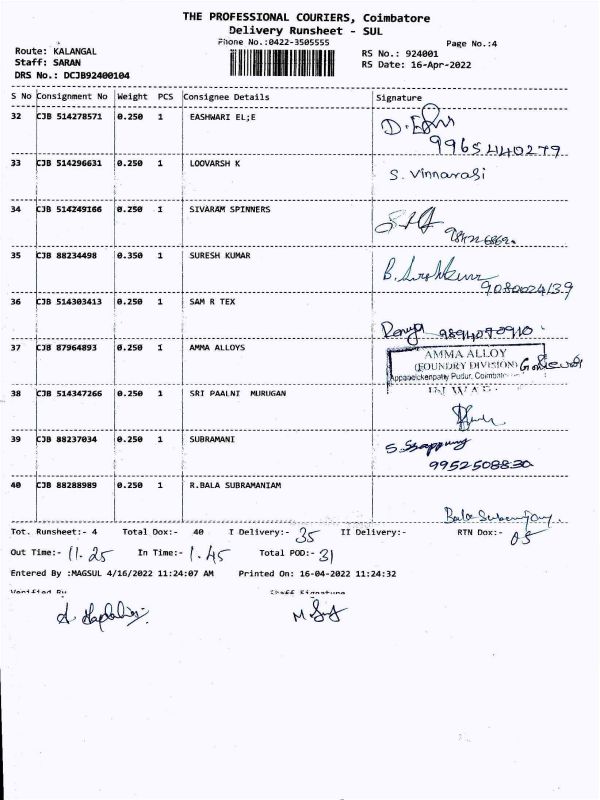 THE PROFESSIONAL COURIERS, Coimbatore
Delivery Runsheet - SUL
Phone No.:0422-3505555
Page No.:4
Route: KALANGAL
RS No.: 924001
Staff: SARAN
RS Date: 16-Apr-2022
DRS No.: DCJB92400104
S No Consignment No Weight PCS Consignee Details Signature
32 CJB 514278571 0.250 1 EASHWARI EL;E
9965440279
33 CJB 514296631 0.250 1 LOOVARSH K S. Vinnarasi
34 CJB 514249166 0.250 1 SIVARAM SPINNERS
35 CJB 88234498 0.350 1 SURESH KUMAR
9080024139
36 CJB 514303413 0.250 1 SAM R TEX
Renuga 9894070910
37 CJB 87964893 0.250 1 AMMA ALLOYS
AMMA ALLOY
(FOUNDRY DIVISION)
Appanaickenpatty Pudur, Coimbatore
INWARD
38 CJB 514347266 0.250 1 SRI PAALNI MURUGAN
39 CJB 88237034 0.250 1 SUBRAMANI
9952508830
40 CJB 88288989 0.250 1 R.BALA SUBRAMANIAM
Tot. Runsheet:- 4 Total Dox:- 40 I Delivery:- 35 II Delivery:- RTN Dox:- 05
Out Time:- 11.25 In Time:- 1.45 Total POD:- 31
Entered By :MAGSUL 4/16/2022 11:24:07 AM Printed On: 16-04-2022 11:24:32
Verified By Staff Signature